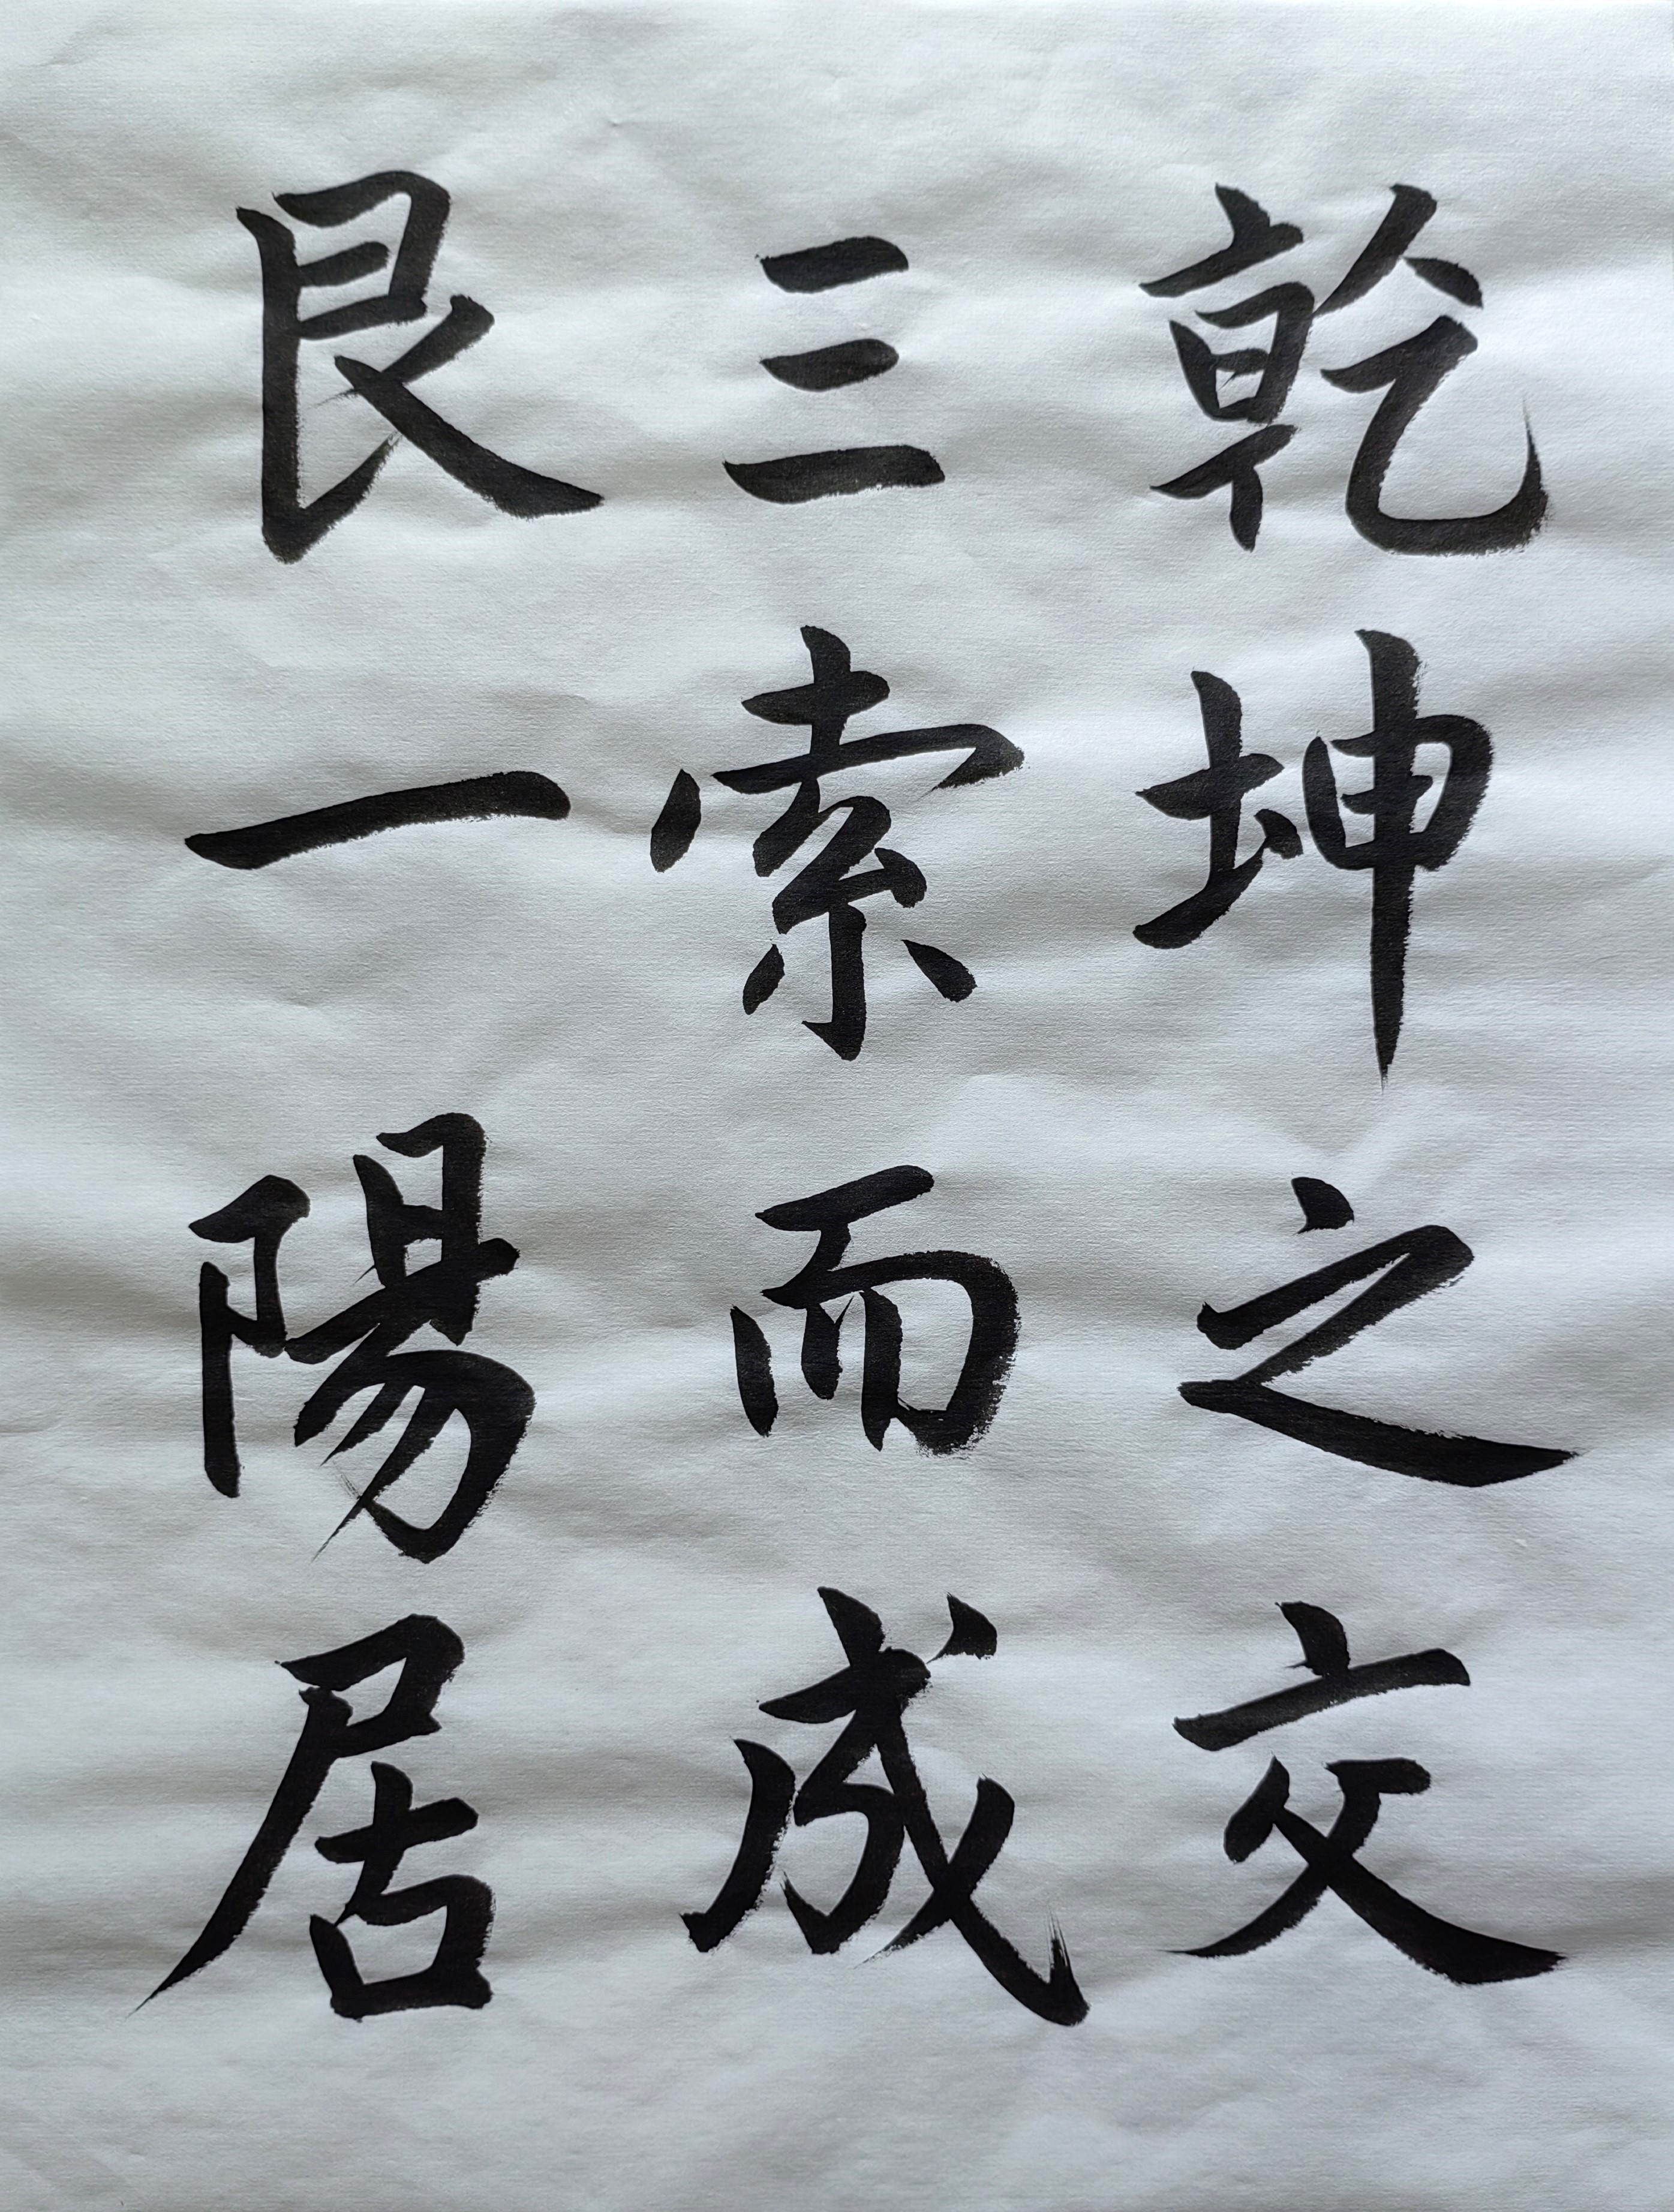 乾坤之交
三索而成
艮一陽居